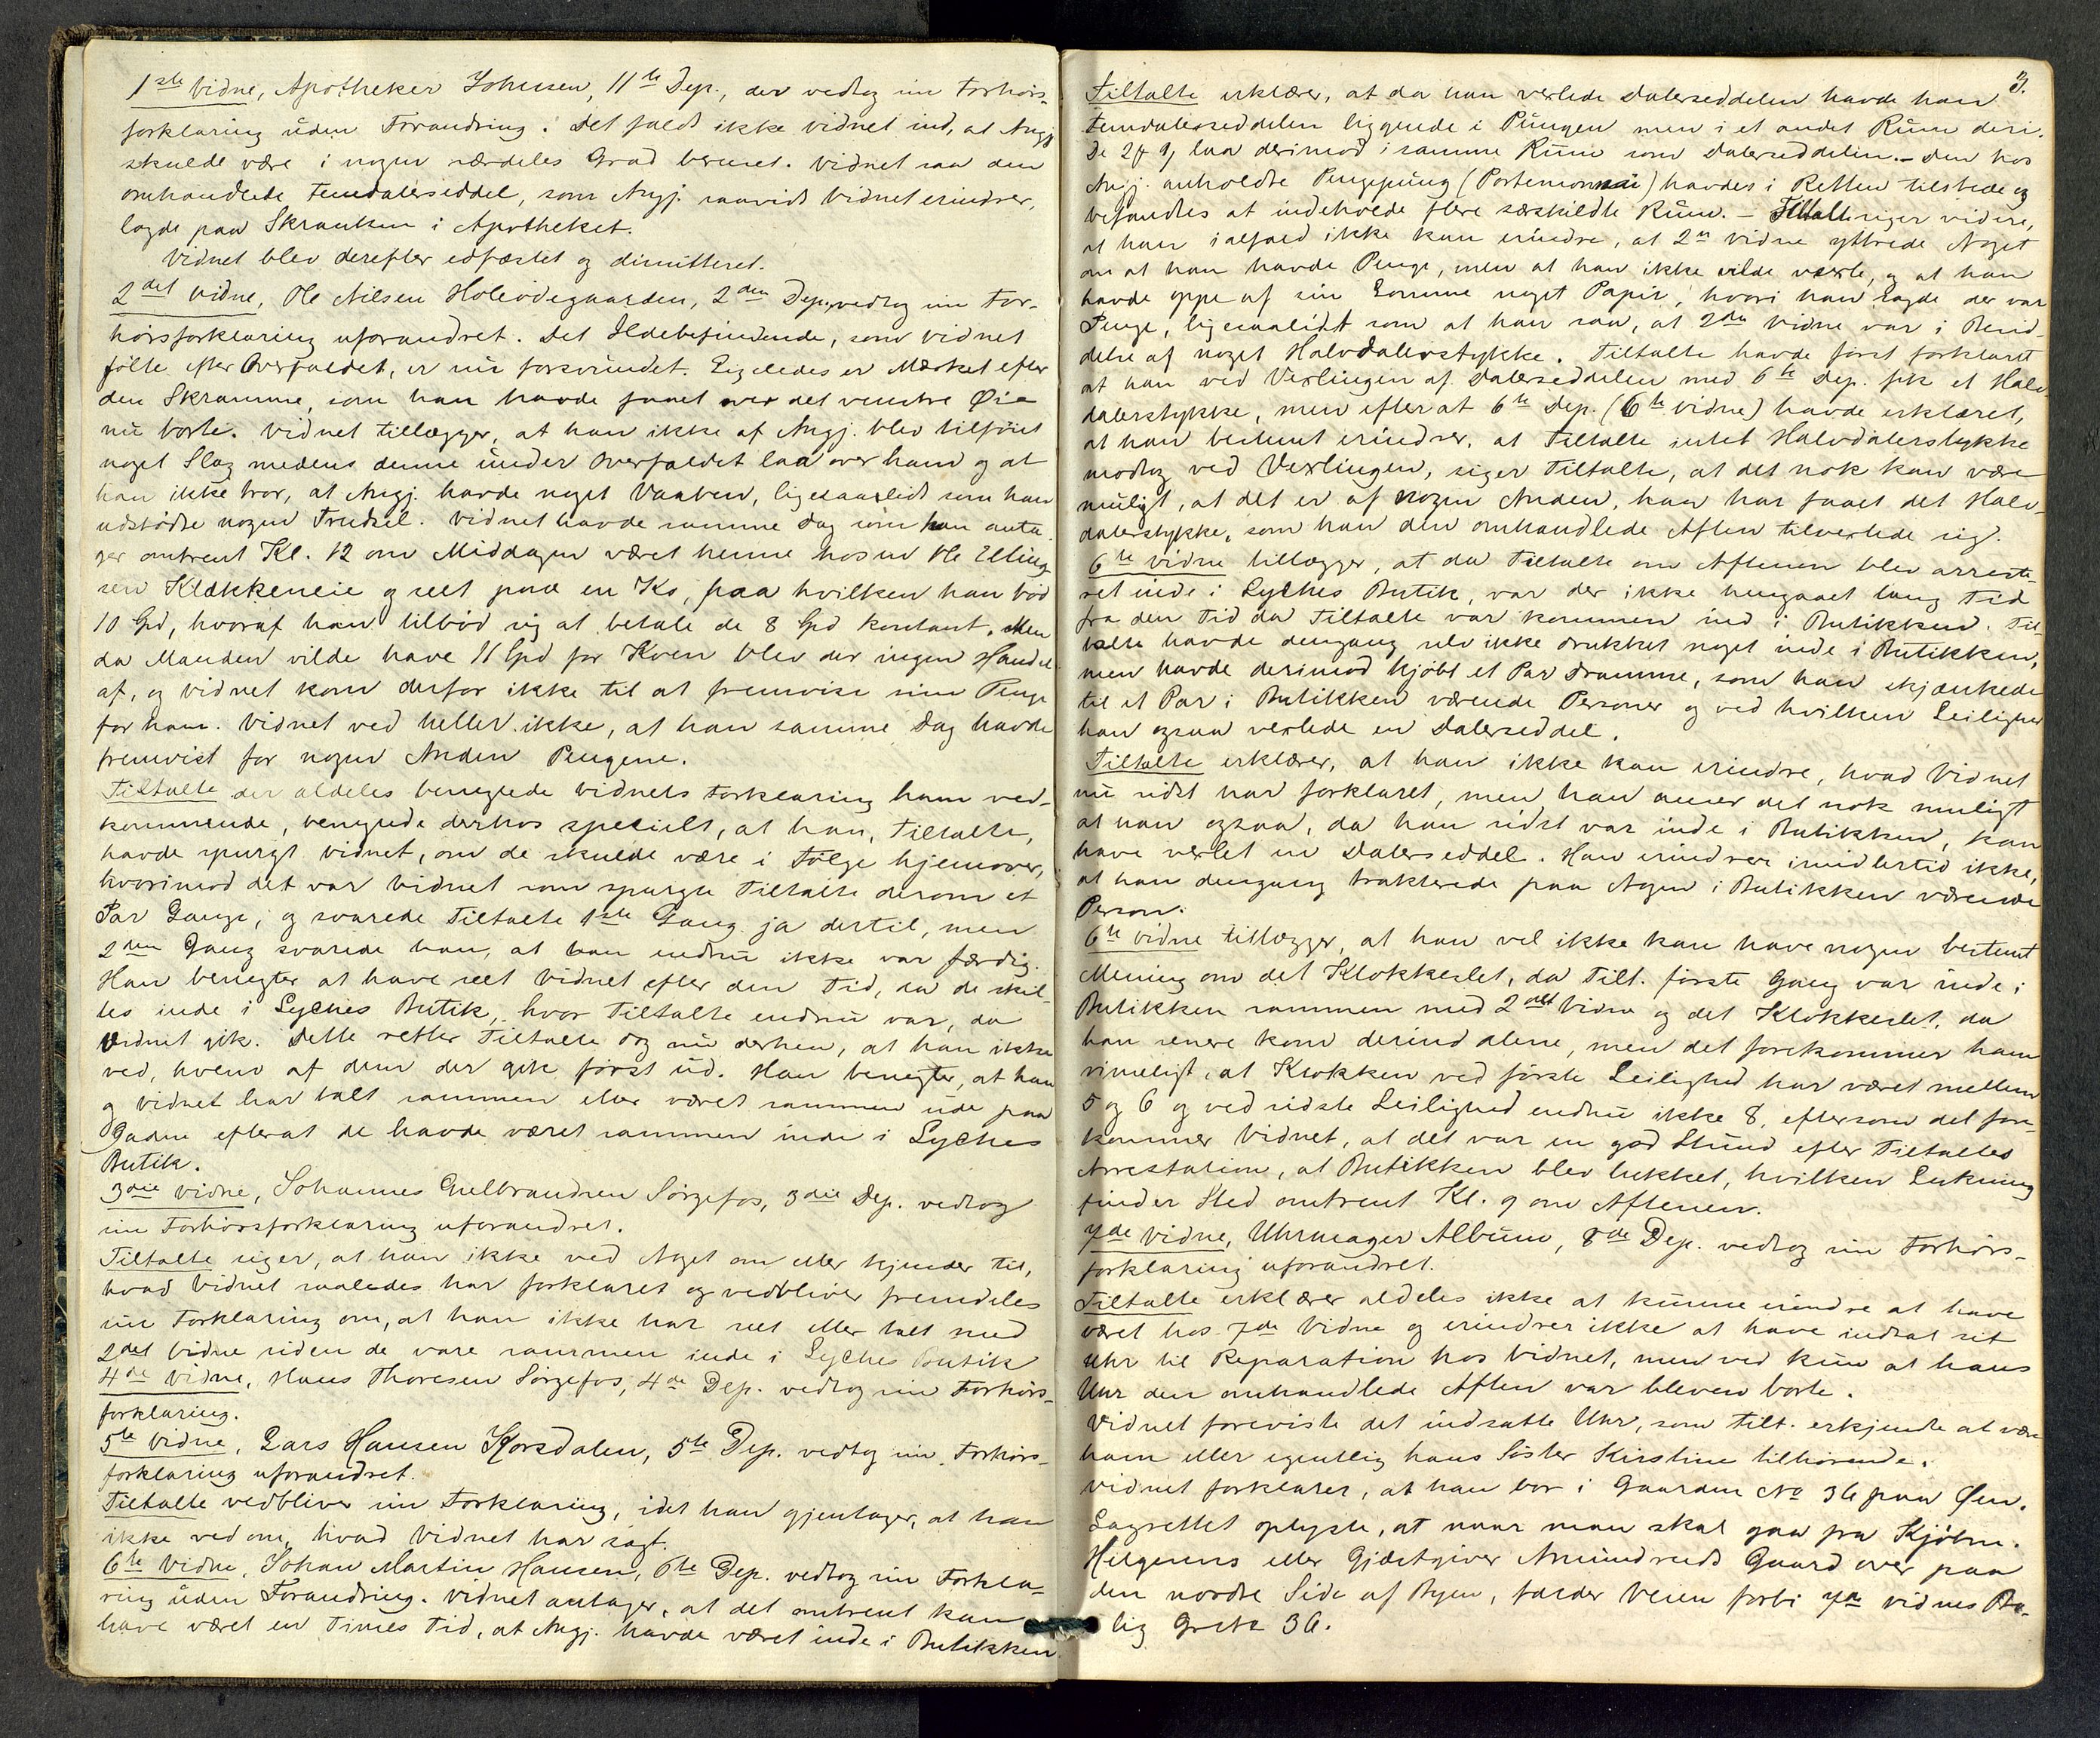 1ste Vidne, Apotheker Johnsen, 11te Dep., der vedtog sin Forhørs-
forklaring uden Forandring. Det faldt ikke Vidnet ind, at Angj.
skulde være i nogen særdeles Grad beruset. Vidnet saa den
omhandlede Femdalerseddel, som Angj. saavidt Vidnet erindrer,
lagde paa Skranken i Apotheket.
Vidnet blev derefter edfæstet og dimitteret.
2det Vidne, Ole Nilsen Holevdegaarden, 2den Dep., vedtog sin For-
hørsforklaring uforandret. Det Ildebefindende, som Vidnet
følte efter Overfaldet, er nu forsvundet. Ligeledes er Mærket efter
den Skramme, som han havde faaet over det venstre Øie
nu borte. Vidnet tillægger, at han ikke af Angj. blev tilføiet
noget Slag medens denne under Overfaldet laa over ham og at
han ikke tror, at Angj. havde noget Vaaben, ligesaalidt som han
udstødte nogen Trudsel. Vidnet havde samme Dag som han anta-
ger omtrent Kl. 12 om Middagen været henne hos en Ole Elling-
sen Klækkeneie og seet paa en Ko, paa hvilken han bød
10 Spd, hvoraf han tilbød sig at betale de 8 Spd kontant. Men
da Manden vilde have 11 Spd for Koen blev der ingen Handel
af, og Vidnet kom derfor ikke til at fremvise sine Penge
for ham. Vidnet ved heller ikke, at han samme Dag havde
fremvist for nogen Anden Pengene.
Tiltalte der aldeles benegtede Vidnets Forklaring ham ved-
kommende, benegtede derhos specielt, at han, Tiltalte,
havde spurgt Vidnet, om de skulde være i Følge hjemover,
hvorimod det var Vidnet som spurgte Tiltalte derom et
Par Gange, og svarede Tiltalte 1ste Gang ja dertil, men
2den Gang svarede han, at han endnu ikke var færdig.
Han benegter at have seet Vidnet efter den Tid, da de skil-
tes inde i Lyches Butik, hvor Tiltalte endnu var, da
Vidnet gik. Dette retter Tiltalte dog nu derhen, at han ikke
ved, hvem af dem der gik først ud. Han benegter, at han
og Vidnet har talt sammen eller været sammen ude paa
Gaden efterat de havde været sammen inde i Lyches
Butik.
3die Vidne, Johannes Gulbrandsen Sørgefos, 3die Dep. vedtog
sin Forhørsforklaring uforandret.
Tiltalte siger, at han ikke ved Noget om eller kjender til,
hvad Vidnet saaledes har forklaret og vedbliver fremdeles
sin Forklaring om, at han ikke har seet eller talt med
2det Vidne siden de vare sammen inde i Lyches Butik
4de Vidne, Hans Thoresen Sørgefos, 4de Dep. vedtog sin Forhørs-
forklaring.
5te Vidne, Lars Hansen Korsdalen, 5te Dep. vedtog sin Forhørs-
forklaring uforandret.
Tiltalte vedbliver sin Forklaring, idet han gjentager, at han
ikke ved om, hvad Vidnet har sagt.
6te Vidne, Johan Martin Hansen, 6te Dep. vedtog sin Forkla-
ring uden Forandring. Vidnet antager, at det omtrent kan
have været en Times Tid, at Angj. havde været inde i Butikken
3.
Tiltalte erklærer, at da han vexlede Dalerseddelen havde han
Femdalerseddelen liggende i Pungen men i et andet Rum deri.
De 2 laa derimod i samme Rum som Dalerseddelen. - Den hos
Angj. anholdte Pengepung (Portemonnai) havdes i Retten tilstede og
befandtes at indeholde flere særskildte Rum. - Tiltalte siger videre,
at han ialfald ikke kan erindre, at 2et Vidne yttrede Noget
om at han havde Penge, men at han ikke vilde vexle, og at han
havde oppe af sin Lomme noget Papir, hvori han sagde der var
Penge, ligesaalidt som at han saa, at 2det Vidne var i Besid-
delse af noget Halvdalerstykke. Tiltalte havde først forklaret
at han ved Vexlingen af Dalerseddelen med 6te Dep. fik et Halv-
dalerstykke, men efter at 6te Dep. (6te Vidne) havde erklæret,
at han bestemt erindrer, at Tiltalte intet Halvdalerstykke
modtog ved Vexlingen, siger Tiltalte, at det nok kan være
muligt, at det er af nogen Anden, han har faaet det Halv-
dalerstykke, som han den omhandlede Aften tilvexlede sig.
6te Vidne tillægger, at da Tiltalte om Aftenen blev arreste-
ret inde i Lyches Butik, var der ikke hengaaet lang Tid
fra den Tid da Tiltalte var kommen ind i Butikken. Til-
talte havde dengang selv ikke drukket noget inde i Butikken,
men havde derimod kjøbt et Par Dramme, som han skjænkede
til et Par i Butikken værende Personer og ved hvilken Leilighed
han ogsaa vexlede en Dalerseddel.
Tiltalte erklærer, at han ikke kan erindre, hvad Vidnet
nu sidst har forklaret, men han anser det nok muligt
at han ogsaa, da han sidst var inde i Butikken, kan
have vexlet en Dalerseddel. Han erindrer imidlertid ikke,
at han dengang trakterede paa Nogen i Butikken værende
Person.
6te Vidne tillægger, at han vel ikke kan have nogen bestemt
Mening om det Klokkeslet, da Tilt. første Gang var inde i
Butikken sammen med 2det Vidne og det Klokkeslet, da
han senere kom derind alene, men det forekommer ham
rimeligt, at Klokken ved første Leilighed har været mellem
5 og 6 og ved sidste Leilighed endnu ikke 8, eftersom det fore-
kommer Vidnet, at det var en god Stund efter Tiltaltes
Arrestation, at Butikken blev lukket, hvilken Lukning
finder Sted omtrent Kl. 9 om Aftenen.
7de Vidne, Uhrmager Album, 8de Dep. vedtog sin Forhørs-
forklaring uforandret.
Tiltalte erklærer aldeles ikke at kunne erindre at have
været hos 7de Vidne og erindrer ikke at have indsat sit
Uhr til Reparation hos Vidnet, men ved kun at hans
Uhr den omhandlede Aften var bleven borte.
Vidnet foreviste det indsatte Uhr, som Tilt. erkjendte at være
ham eller egentlig hans Søster Kirstine tilhørende.
Vidnet forklarer, at han bor i Gaarden No 36 paa Øen.
Lagrettet oplyste, at naar man skal gaa fra Kjøbm.
Hilgenns eller Gjæstgiver Amundruds Gaard over paa
den nordre Side af Byen, falder Veien forbi 7de Vidnes Bo-
lig 36.